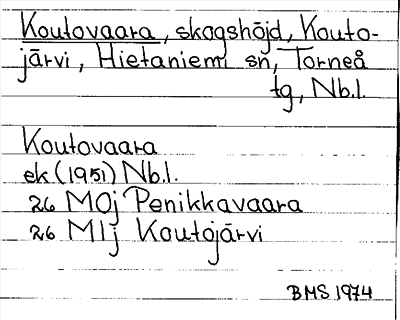 Koutovaara, skogshöjd, Kouto-
järvi, Hietaniemi sn, Torneå
tg, Nb.l.
Koutovaara
ek (1951) Nb.l.
26 M0j Penikkavaara
26 M1j Koutojärvi
BMS 1974